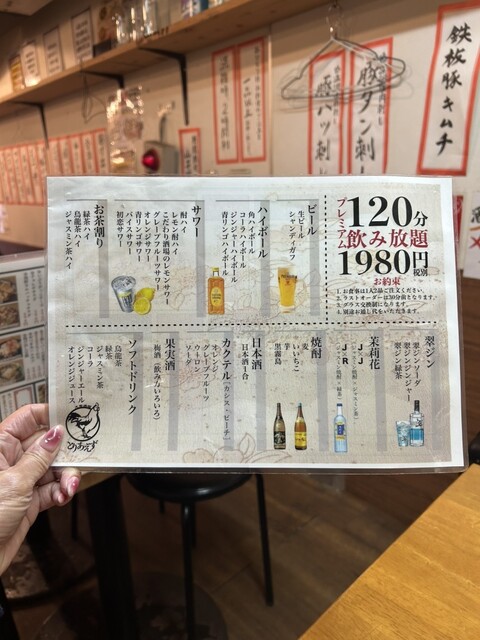 プレミアム
120分
飲み放題
1980円
税別
お約束
1. お食事は1人2品ご注文ください。
2. ラストオーダーは30分前となります。
3. グラス交換制になります。
4. 別途お通し代をいただきます。
ビール
生ビール
シャンディガフ
ハイボール
角ハイボール
コーラハイボール
ジンジャーハイボール
青リンゴハイボール
サワー
酎ハイ
レモン酎ハイ
こだわり酒場のレモンサワー
グレープフルーツサワー
オレンジサワー
青リンゴサワー
パイスサワー
初恋サワー
お茶割り
緑茶ハイ
烏龍茶ハイ
ジャスミン茶ハイ
翠ジン
翠ジンソーダ
翠ジンジンジャー
翠ジン緑茶
茉莉花
J×J
J×R
焼酎
麦
いいちこ
芋
黒霧島
日本酒
日本酒1合
カクテル(カシス・ピーチ)
オレンジ
グレープフルーツ
ウーロン
ソーダ
果実酒
梅酒(飲みないろいろ)
ソフトドリンク
烏龍茶
ジャスミン茶
緑茶
コーラ
ジンジャーエール
オレンジジュース
とりあえず
鉄板豚キムチ
豚タン刺し
豚ハツ刺し